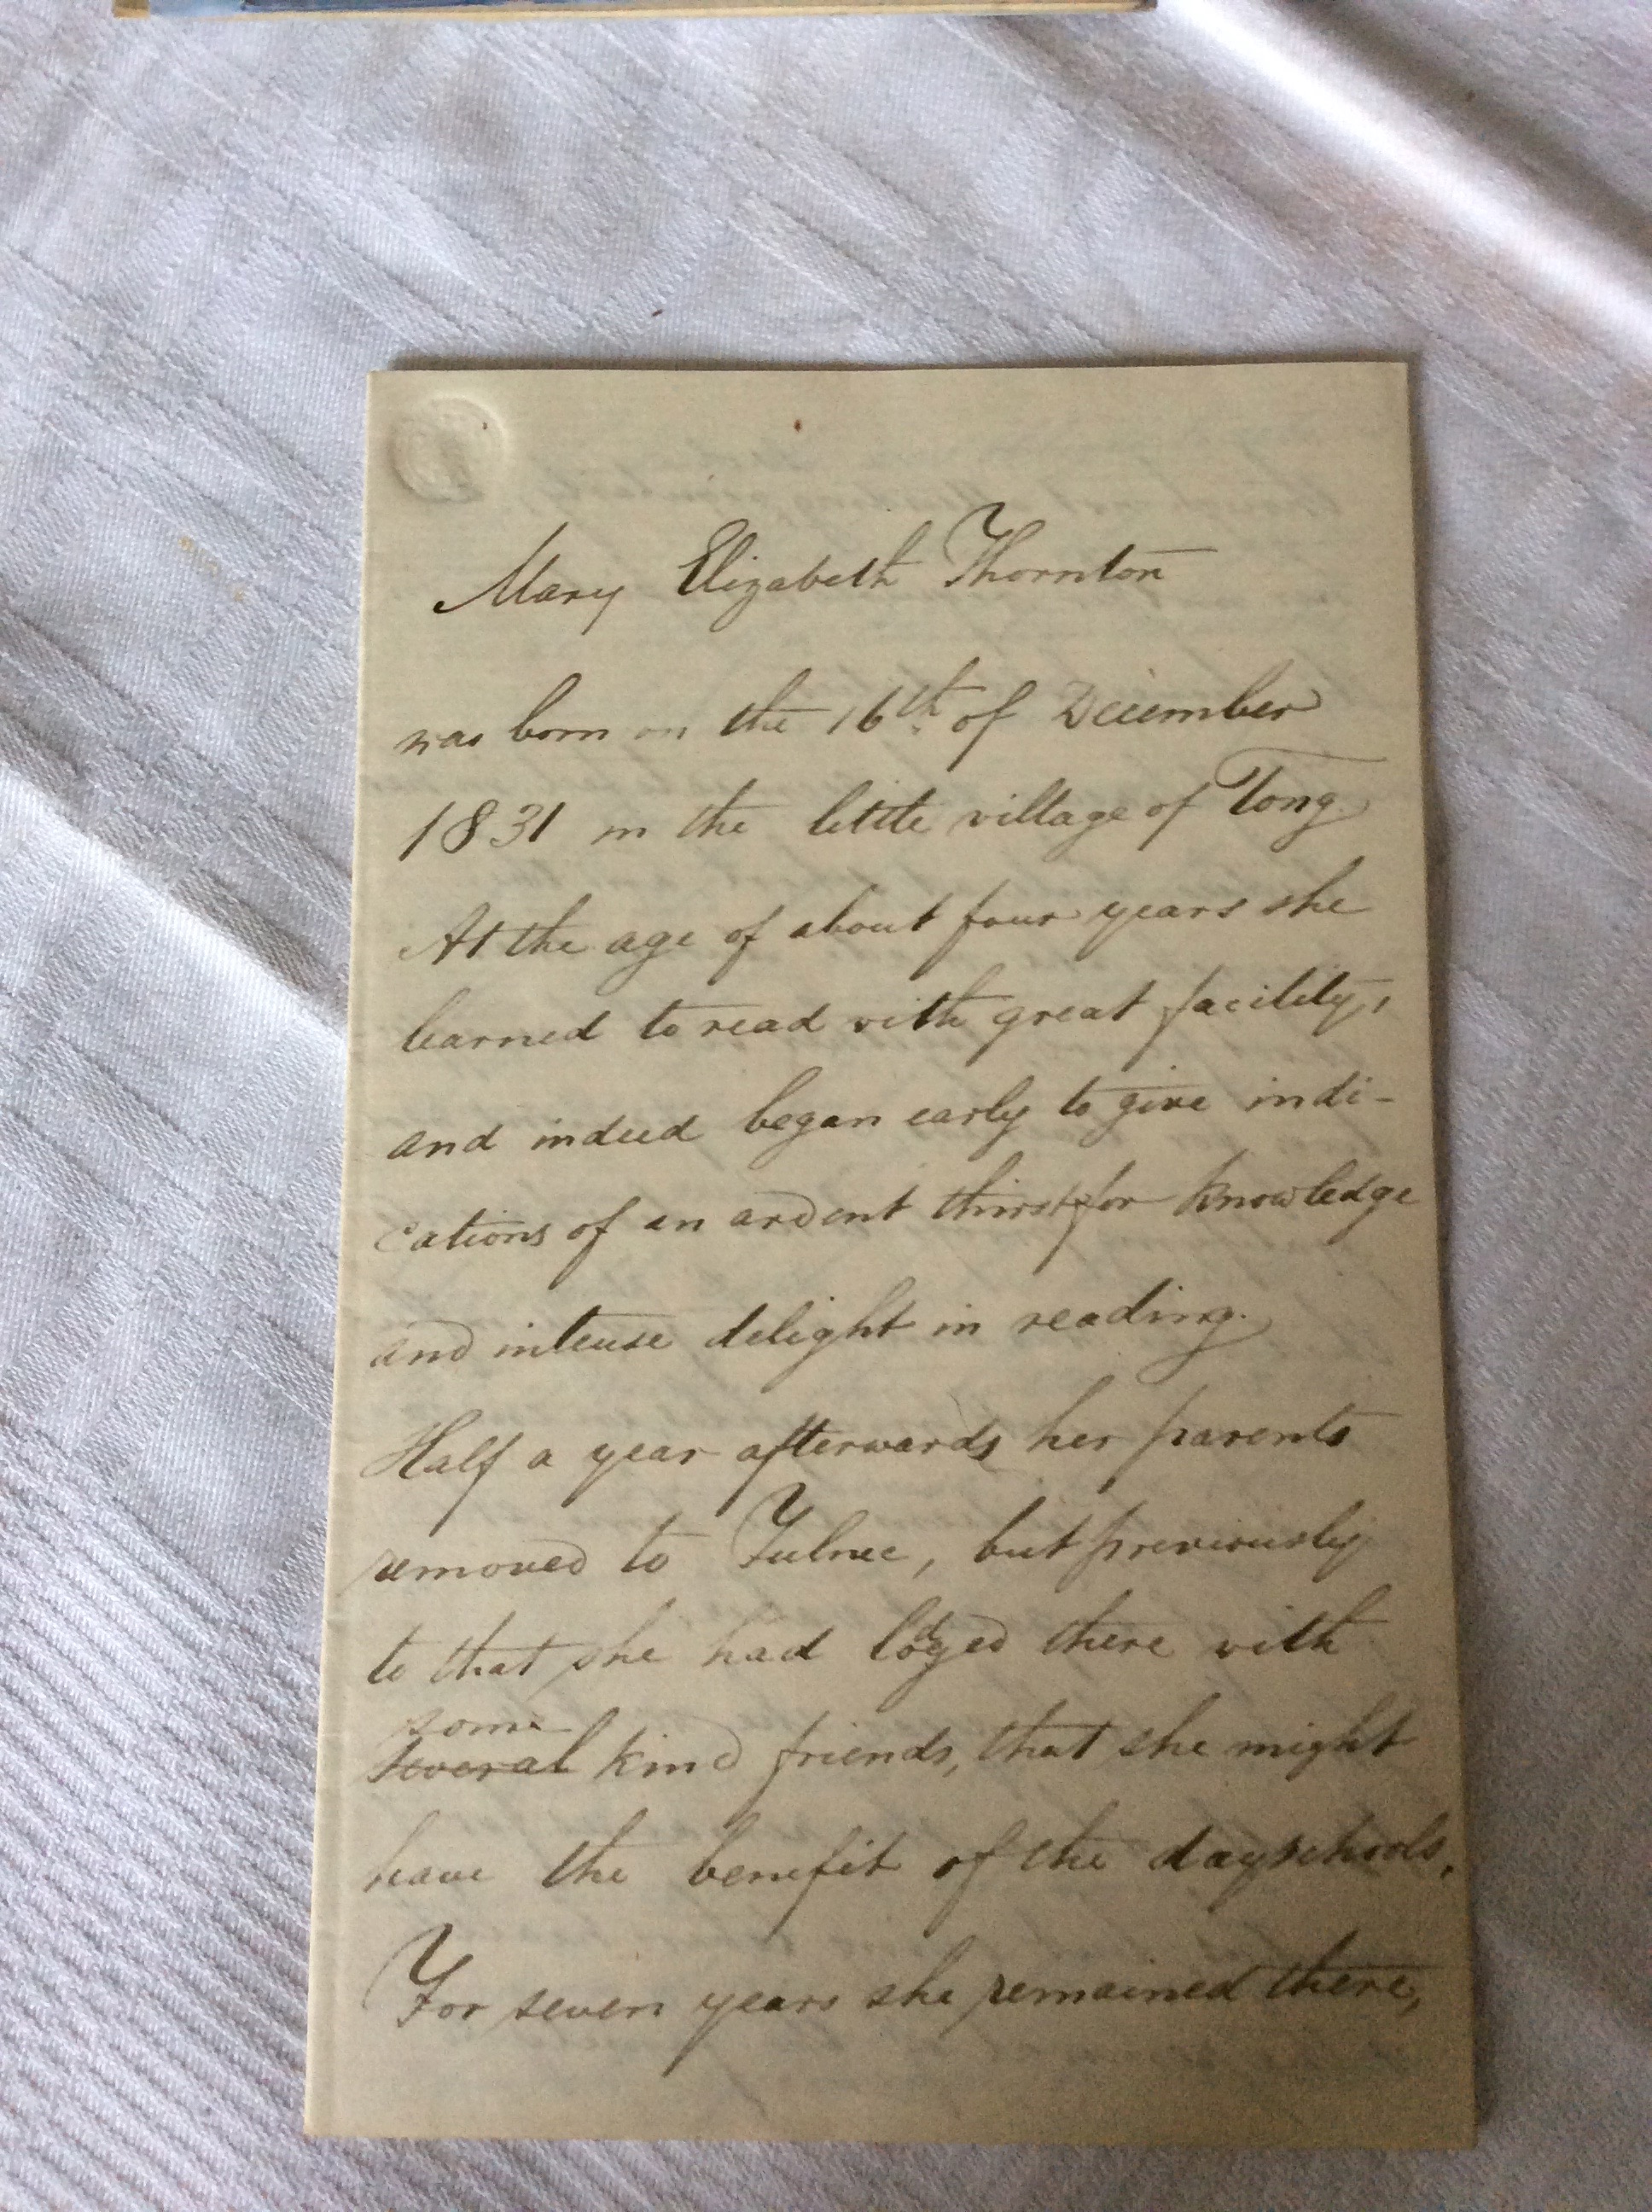 Mary Elizabeth Thornton
was born on the 16th of December
1831 in the little village of Tong.
At the age of about four years she
learned to read with great facility,
and indeed began early to give indi-
cations of an ardent thirst for knowledge
and intense delight in reading.
Half a year afterwards her parents
removed to Fulnec, but previously
to that she had lodged there with
some
several kind friends, that she might
have the benefit of the dayschools.
For seven years she remained there,